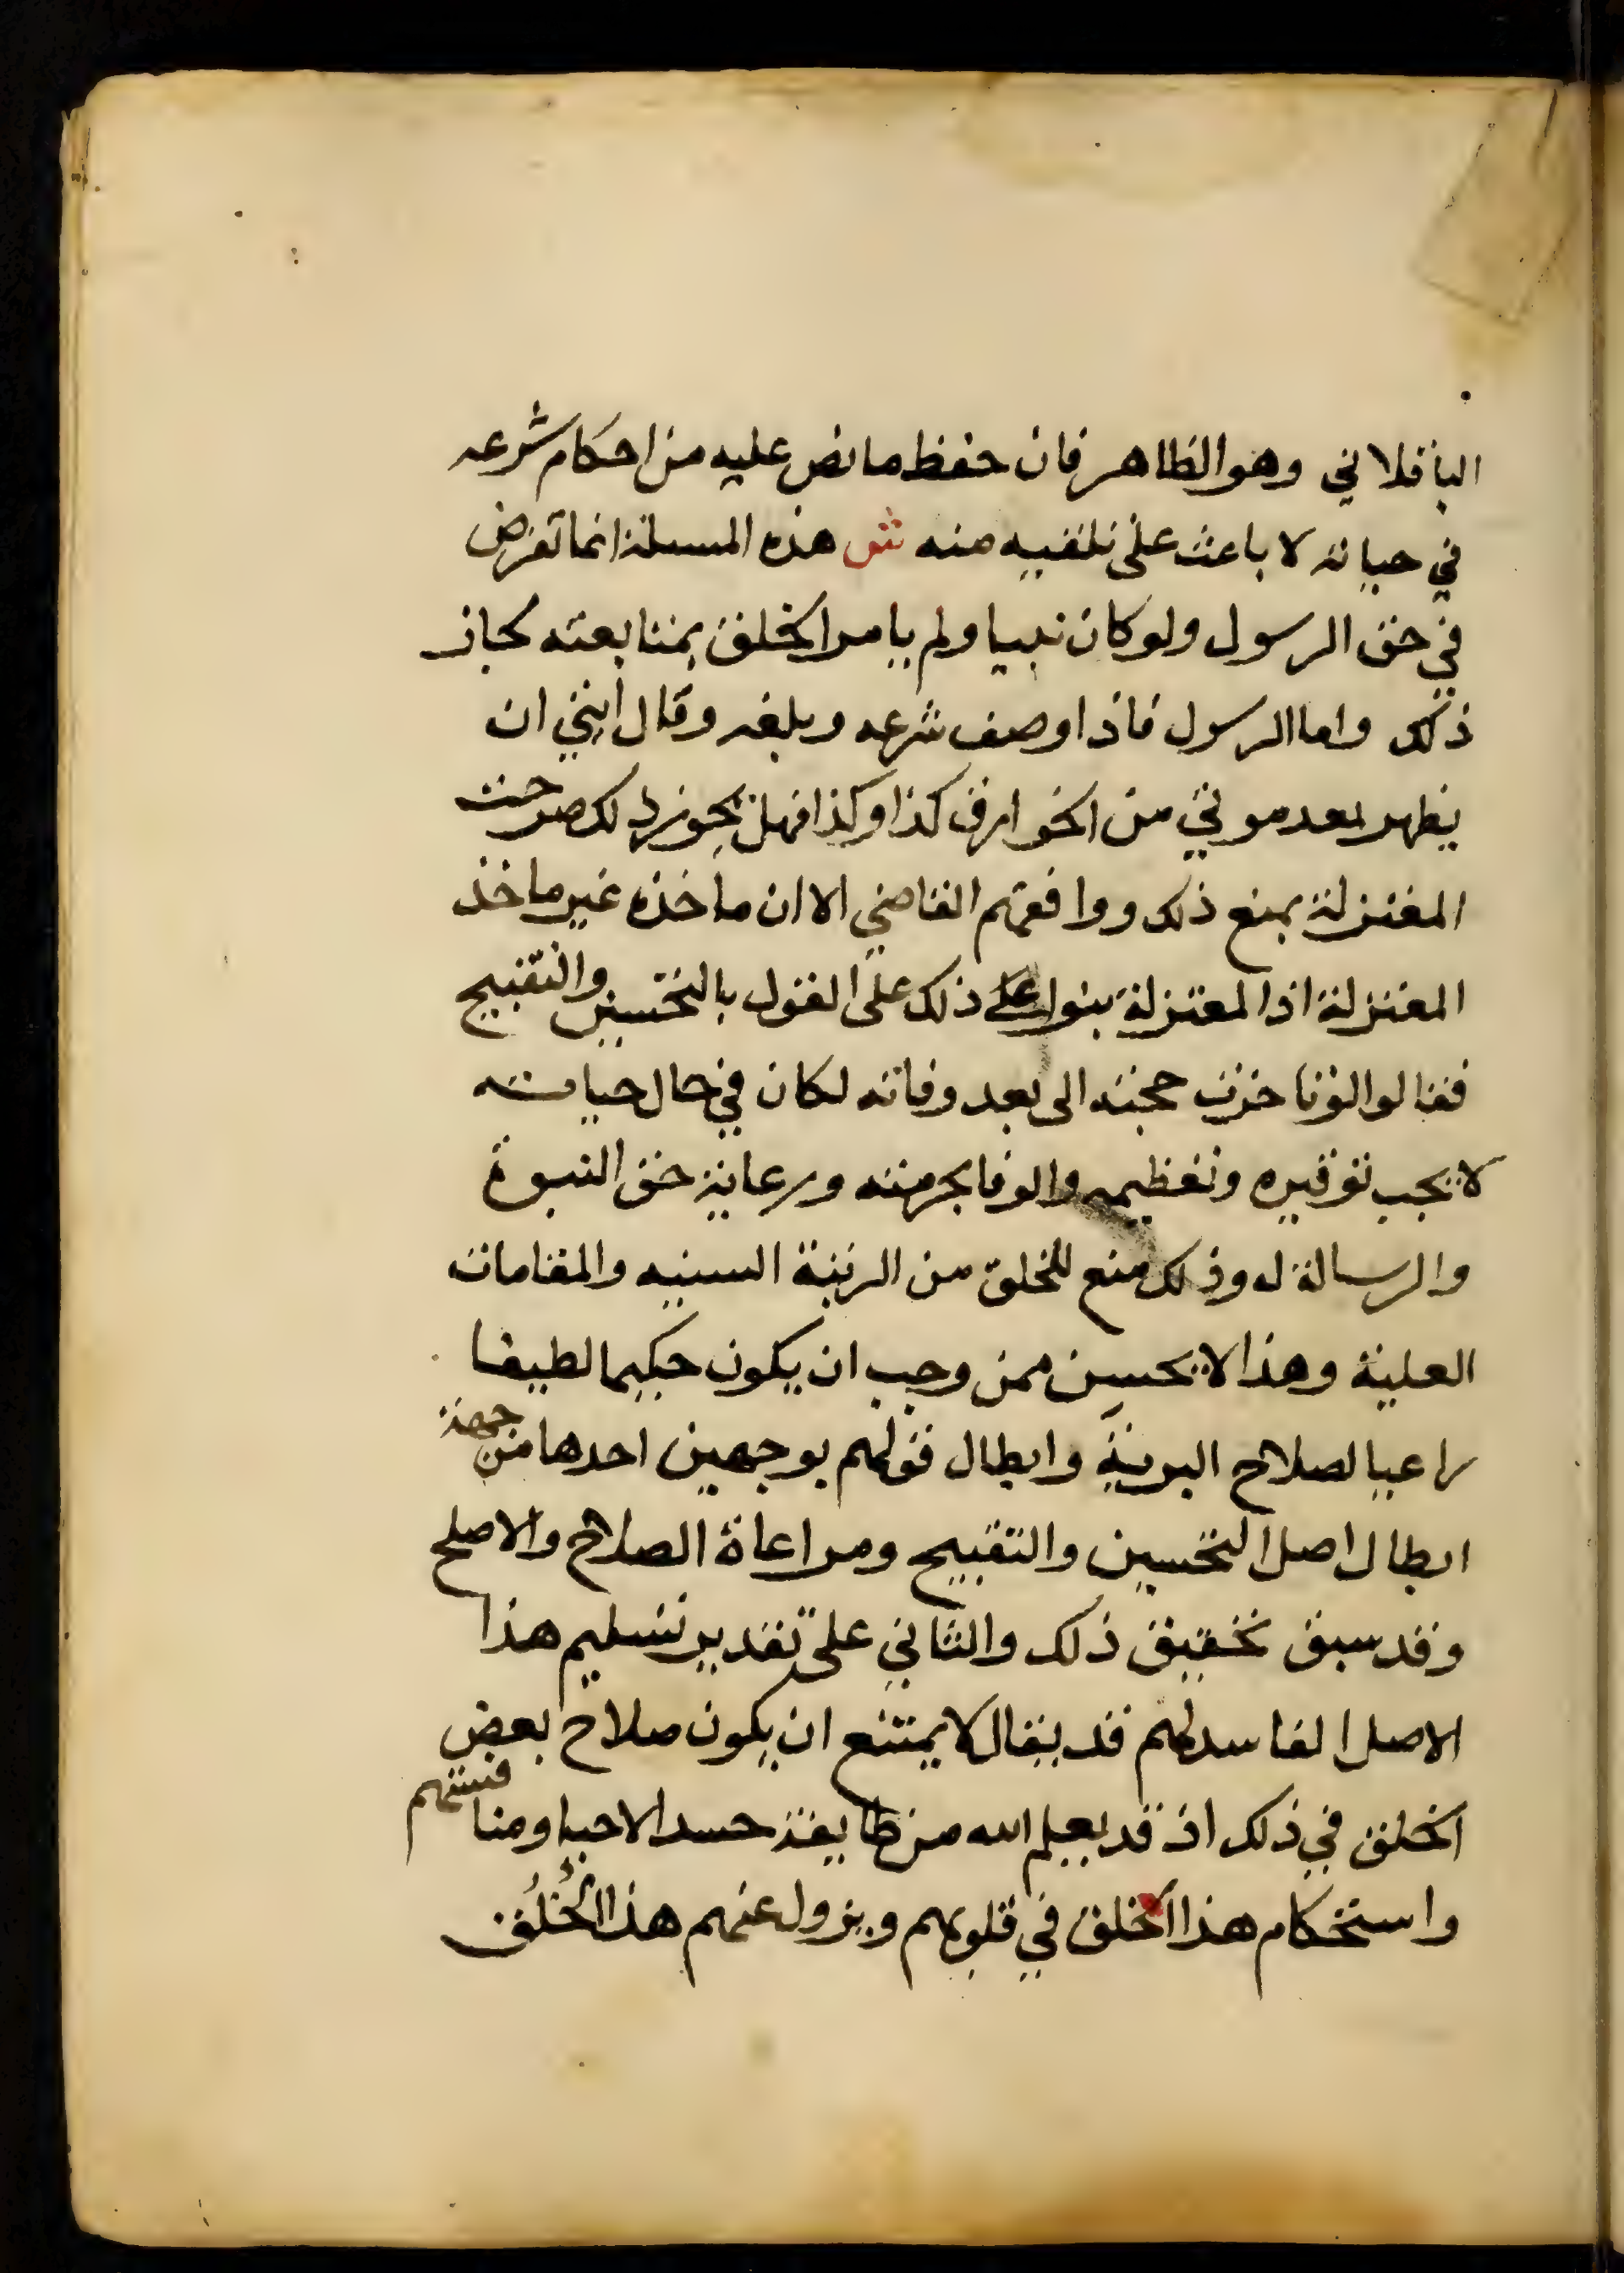 الباقلاني وهو الظاهر فان حفظ ما نص عليه من احكام شرعه
في حياته لا باعث على تلقيه منه ش هذه المسلة انما تفرض
في حق الرسول ولو كان نبيا ولم يامر الخلق بمتابعته لجاز
ذلك واما الرسول فاذا وصف شرعه وبلغه وقال ايتي ان
يظهر بعد موتي من الخوارق كذا وكذا فهل يجوز ذلك صرحت
المعتزلة بمنع ذلك ووافقهم القاضي الا ان ماخذه غير ماخذ
المعتزلة اذ المعتزلة بنوا على ذلك على القول بالتحسين والتقبيح
فقالوا لو تاخرت حجته الى بعد وفاته لكان في حال حياته
لا يجب توقيره وتعظيمه والوفا بحرمته ورعاية حق النبوة
والرسالة له وذلك منع للخلق من الرتبة السنيه والمقامات
العلية وهذا لا يحسن ممن وجب ان يكون حكيما لطيفا
راعيا لصلاح البرية وابطال قولهم بوجهين احدها من جهة
ابطال اصل التحسين والتقبيح ومراعاة الصلاح والاصلح
وقد سبق تحقيق ذلك والثاني على تقدير تسليم هذا
الاصل الفاسد لهم قد يقال لا يمتنع ان يكون صلاح بعض
الخلق في ذلك اذ قد يعلم الله من طايفة حسد الاحيا ومنافستهم
واستحكام هذا الخلق في قلوبهم ويزول عنهم هذا الخُلُق